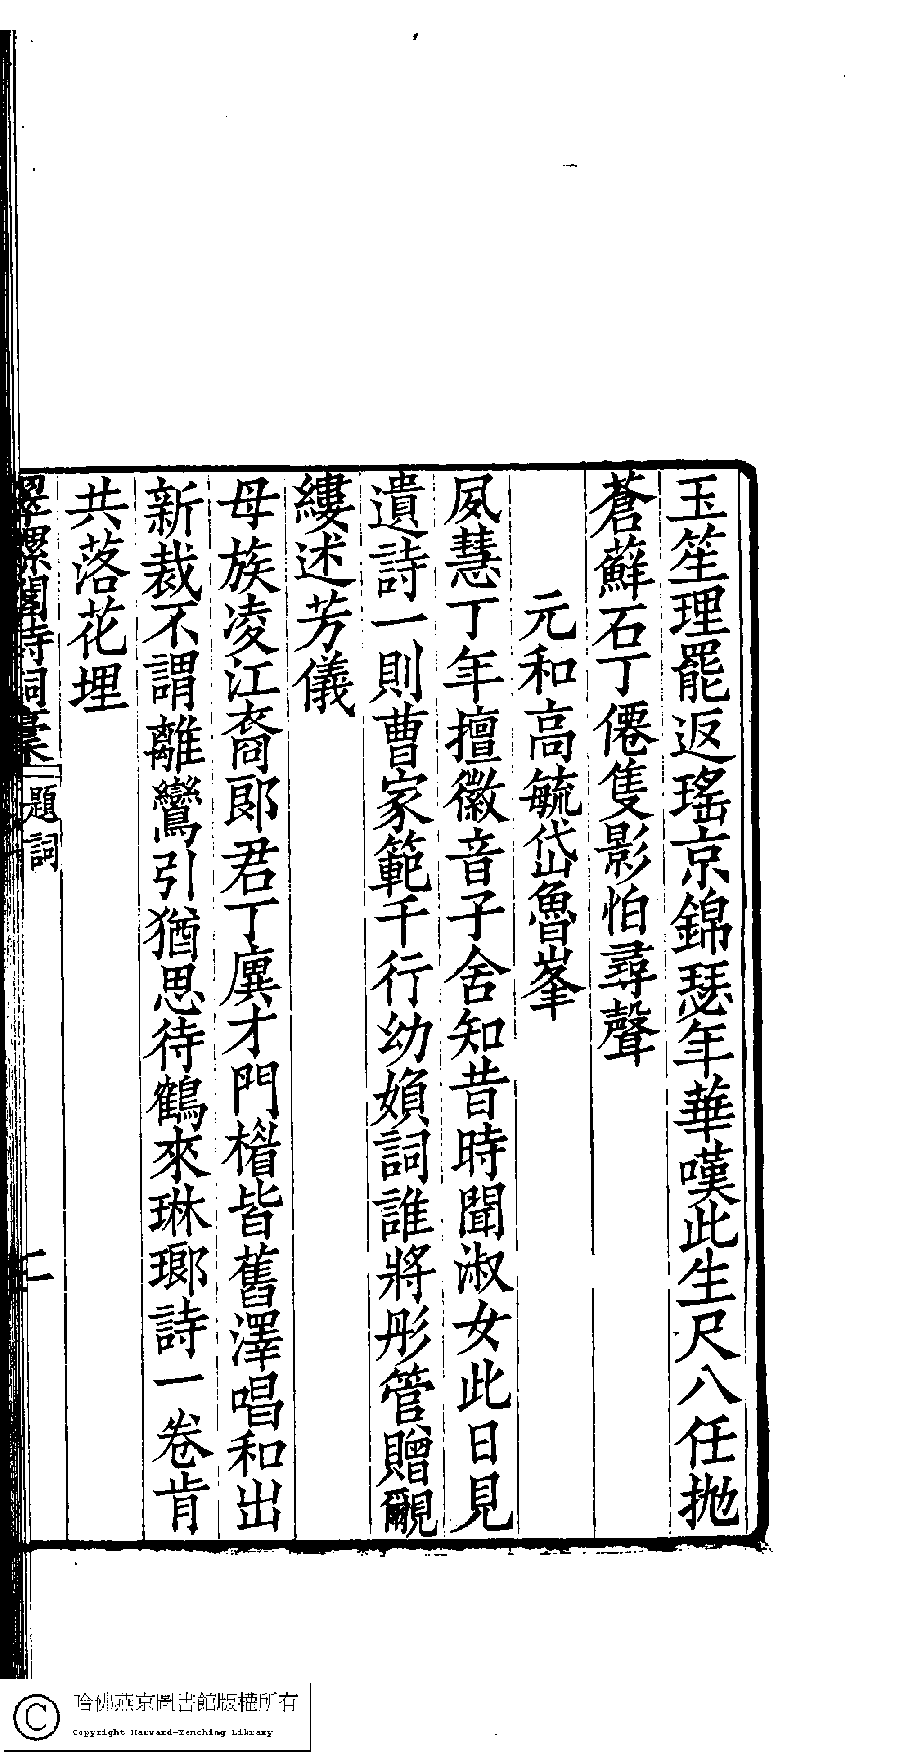 玉笙理罷返瑤京錦瑟年華嘆此生尺八任抛
蒼蘚石丁僊隻影怕尋聲
元和高毓岱魯峯
夙慧丁年擅徽音子舍知昔時聞淑女此日見
遺詩一則曹家範千行幼媍詞誰將彤管贈覼
縷述芳儀
母族凌江裔郎君丁廙才門楣皆舊澤唱和出
新裁不謂離鸞引猶思待鶴來琳瑯詩一卷肯
共落花埋
翠螺閣詩詞稾
題詞
二
哈佛燕京圖書館版權所有
Copyright Harvard-Yenching Library